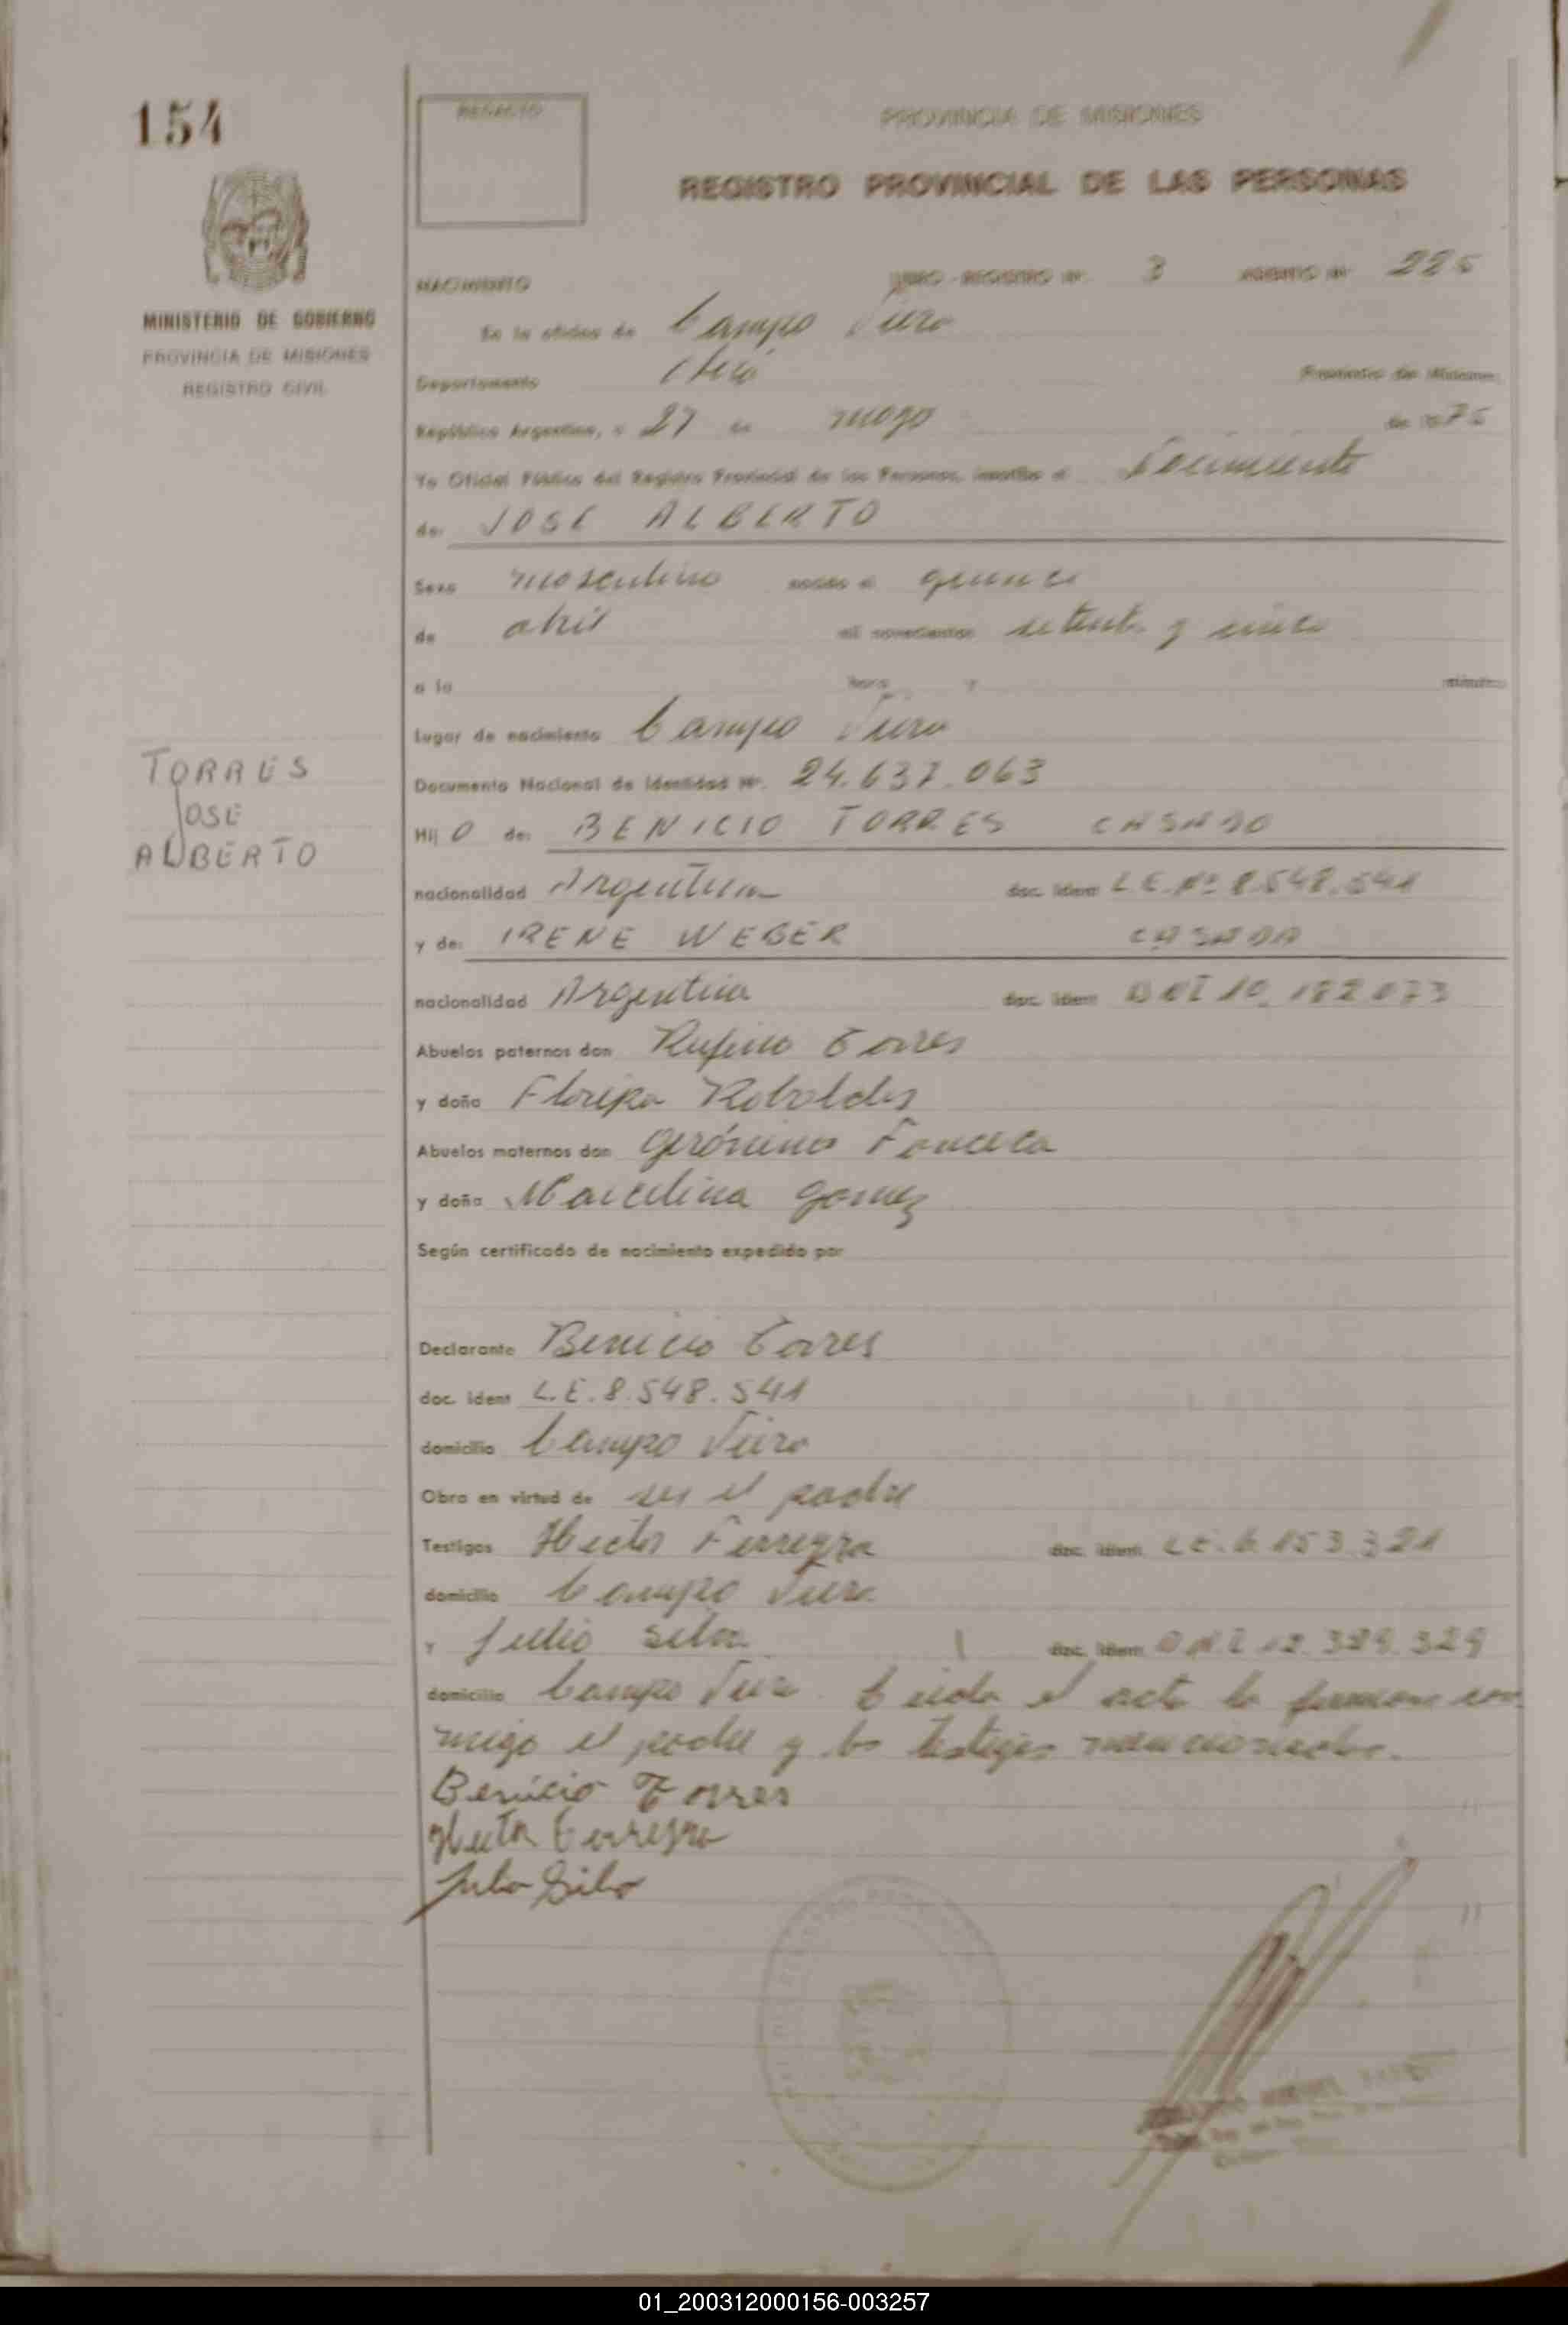 154
REGISTRO PROVINCIAL DE LAS PERSONAS
PROVINCIA DE MISIONES
MINISTERIO DE GOBIERNO
PROVINCIA DE MISIONES
REGISTRO CIVIL
NACIMIENTO LIBRO - REGISTRO Nº 3 ASIENTO Nº
En la oficina de Campo Viera
Departamento Provincia de Misiones
República Argentina, a 27 de mayo de
Yo Oficial Público del Registro Provincial de las Personas, inscribo el Nacimiento
de: JOSE ALBERTO
Sexo masculino nacido el quince
de abril mil novecientos setenta y cinco
a la hora y minutos
Lugar de nacimiento Campo Viera
Documento Nacional de Identidad Nº. 24.637.063
Hij O de: BENICIO TORRES CASADO
TORRES
JOSE
ALBERTO
nacionalidad Argentina doc. ident L.E.Nº 8.548.541
y de: IRENE WEBER CASADA
nacionalidad Argentina doc. ident
Abuelos paternos don Rufino Torres
y doña Floripa
Abuelos maternos don Gerónimo Fonceca
y doña Marcelina Gomez
Según certificado de nacimiento expedido por
Declarante Benicio Torres
doc. ident L.E. 8.548.541
domicilio Campo Viera
Obra en virtud de ser el padre
Testigos Hector Ferreyra doc. ident. L.E. 6.153.321
domicilio Campo Viera
y Julio Silva doc. ident D.N.I 12.329.329
domicilio Campo Viera. Leida el acta la firman con
migo el padre y los testigos mencionados.
Benicio Torres
Hector Ferreyra
Julio Silva
01_200312000156-003257